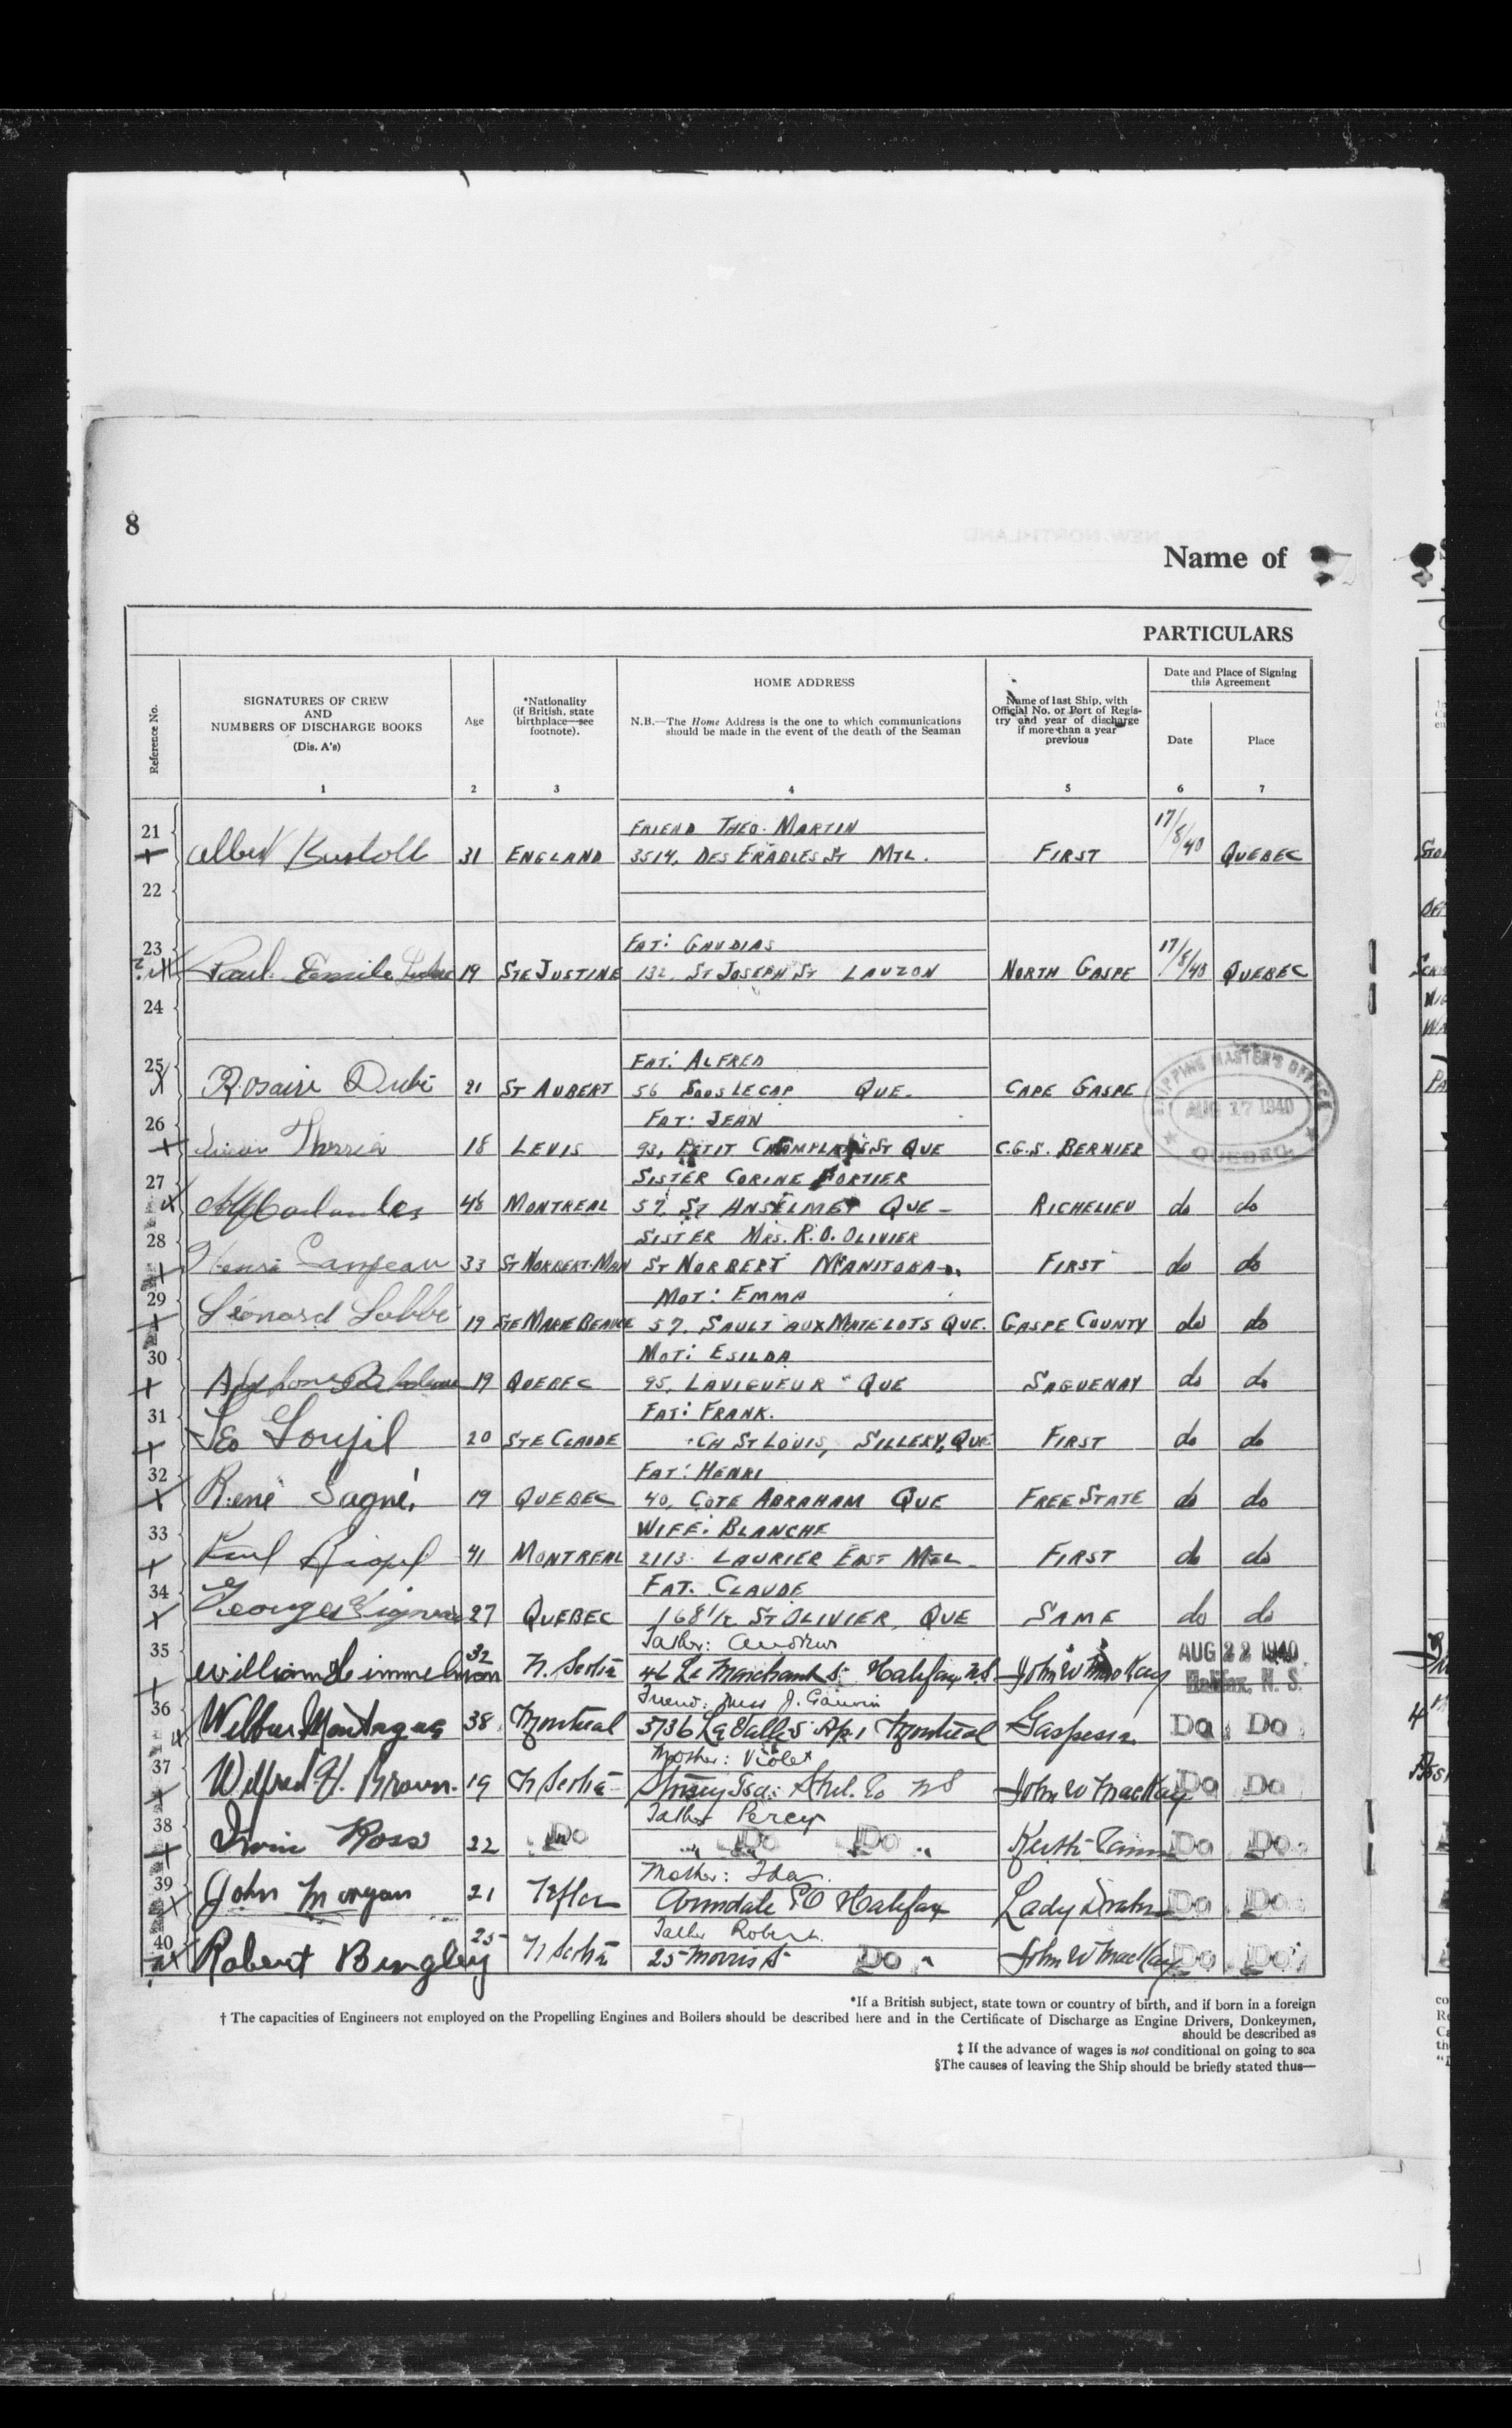 8
Name of
PARTICULARS
Reference No.
SIGNATURES OF CREW
AND
NUMBERS OF DISCHARGE BOOKS
(Dis. A's)
1
Age
2
*Nationality
(if British, state
birthplace—see
footnote).
3
HOME ADDRESS
N.B.—The Home Address is the one to which communications
should be made in the event of the death of the Seaman
4
Name of last Ship, with
Official No. or Port of Regis-
try and year of discharge
if more than a year
previous
5
Date and Place of Signing
this Agreement
Date
6
Place
7
FRIEND THEO. MARTIN
21 Albert 31 ENGLAND 3514, DES ERABLES ST MTL. FIRST 17/8/40 QUEBEC
22
FAT: GAUDIAS
23 Paul Emile 19 STE JUSTINE 132, ST JOSEPH ST LAUZON NORTH GASPE 17/8/40 QUEBEC
24
FAT: ALFRED
25 Rosaire Dubé 21 ST AUBERT 56 SOUS LE CAP QUE. CAPE GASPE
SHIPPING MASTER'S OFFICE
AUG 17 1940
QUEBEC
FAT: JEAN
26 18 LEVIS 93, PETIT CHAMPLAIN ST QUE C.G.S. BERNIER
SISTER CORINE FORTIER
27 48 MONTREAL 57, ST ANSELME QUE- RICHELIEU do do
SISTER MRS. R.O. OLIVIER
28 Henri Campeau 33 ST NORBERT-MAN ST NORBERT MANITOBA FIRST do do
MOT: EMMA
29 Léonard Labbé 19 STE MARIE BEAUCE 57, SAULT AUX MATELOTS QUE. GASPE COUNTY do do
MOT: ESILDA
30 Alphonse 19 QUEBEC 95, LAVIGUEUR QUE SAGUENAY do do
FAT: FRANK.
31 Léo Goupil 20 STE CLAUDE CH ST LOUIS, SILLERY, QUE FIRST do do
FAT: HENRI
32 René Gagné 19 QUEBEC 40, COTE ABRAHAM QUE FREE STATE do do
WIFE: BLANCHE
33 Riopel 41 MONTREAL 2113 LAURIER EAST MTL FIRST do do
FAT. CLAUDE
34 Georges 27 QUEBEC 168½ ST OLIVIER, QUE SAME do do
Father: Andrew
35 William Himmelman 32 N. Scotia 46 Le Marchant St Halifax N.S. John W MacKay AUG 22 1940 Halifax, N. S.
Friend: Miss J. Gauvin
36 Wilbur Montague 38 Montreal 3736 LaSalle Apt 1 Montreal Gaspesia Do Do
Mother: Violet
37 Wilfred H. Brown. 19 N Scotia Shel. Co NS John W MacKay Do Do
Father Percy
38 Irvin Ross 22 Do " Do Do " Do Do
Mother: Ida
39 John Morgan 21 Nfld Armdale PO Halifax Lady Drake Do Do
Father Robert.
40 Robert Bingley 25 N Scotia 25 Morris St Do " John W MacKay Do Do
*If a British subject, state town or country of birth, and if born in a foreign
† The capacities of Engineers not employed on the Propelling Engines and Boilers should be described here and in the Certificate of Discharge as Engine Drivers, Donkeymen,
should be described as
‡ If the advance of wages is not conditional on going to sea
§The causes of leaving the Ship should be briefly stated thus—